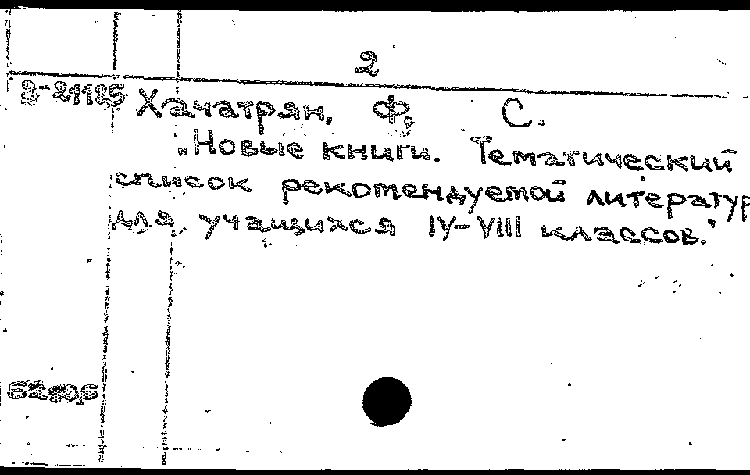 2
Хачатрян, Ф. С.
„Новые книги. Тематический
список рекомендуемой литератур
для учащихся IV-VIII классов."